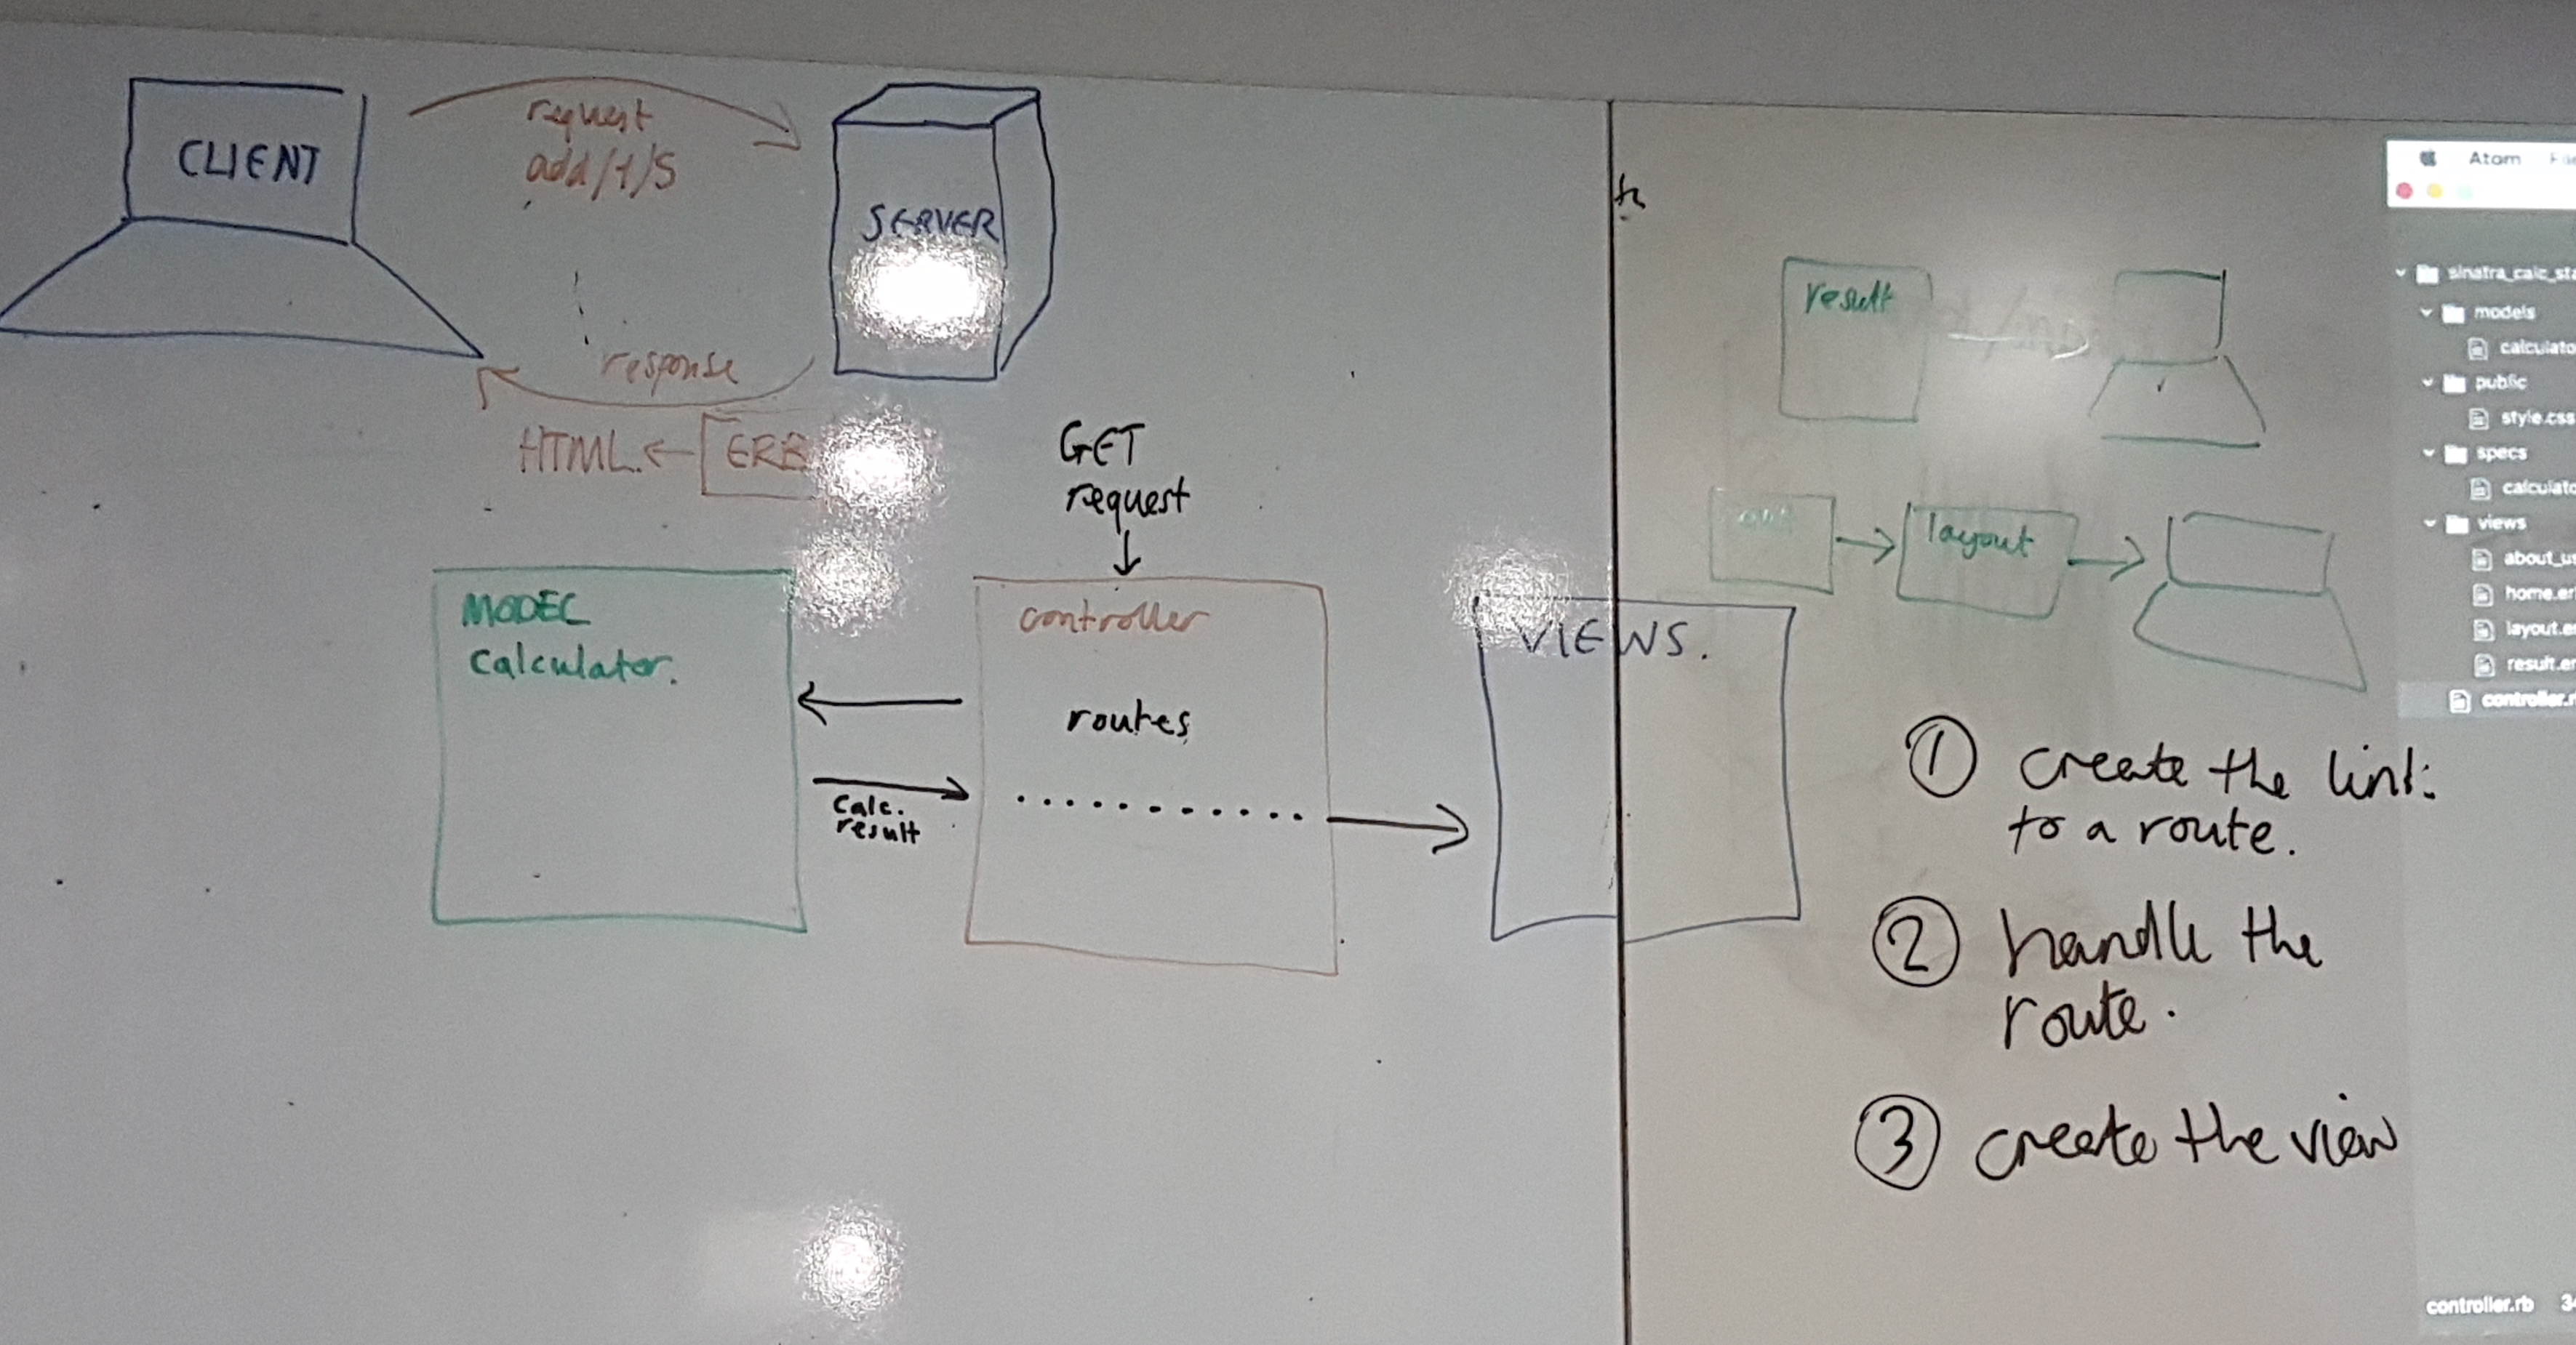 CLIENT
request
add/1/5
SERVER
response
HTML ← ERB
GET
request
MODEL
Calculator.
controller
routes
Calc.
result
VIEWS.
result
layout
① create the link
to a route.
② handle the
route.
③ create the view
Atom
sinatra_calc_sta
models
calculato
public
style.css
specs
calculato
views
about_us
home.er
layout.e
result.er
controller.r
controller.rb